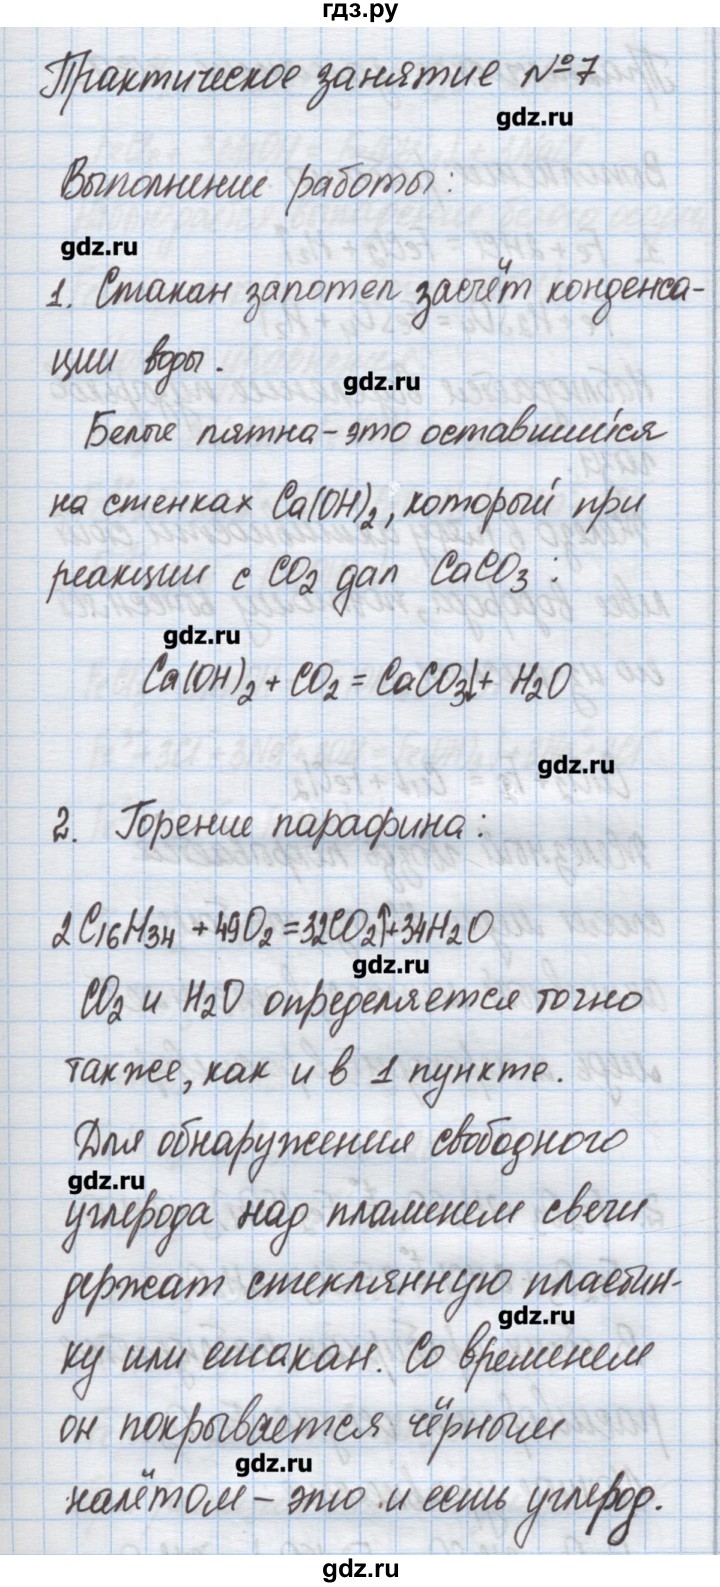 гдз.ру
Практическое занятие №7
gdz.ru
Выполнение работы:
gdz.ru
1. Стакан запотел засчёт конденса-
ции воды.
gdz.ru
Белые пятна-это оставшийся
на стенках Ca(OH)2, который при
реакции с CO2 дал CaCO3:
gdz.ru
Ca(OH)2 + CO2 = CaCO3↓ + H2O
gdz.ru
2. Горение парафина:
2C16H34 + 49O2 = 32CO2↑ + 34H2O
gdz.ru
CO2 и H2O определяется точно
также, как и в 1 пункте.
Для обнаружения свободного
gdz.ru
углерода над пламенем свечи
держат стеклянную пластин-
gdz.ru
ку или стакан. Со временем
он покрывается чёрным
gdz.ru
налётом – это и есть углерод.
gdz.ru